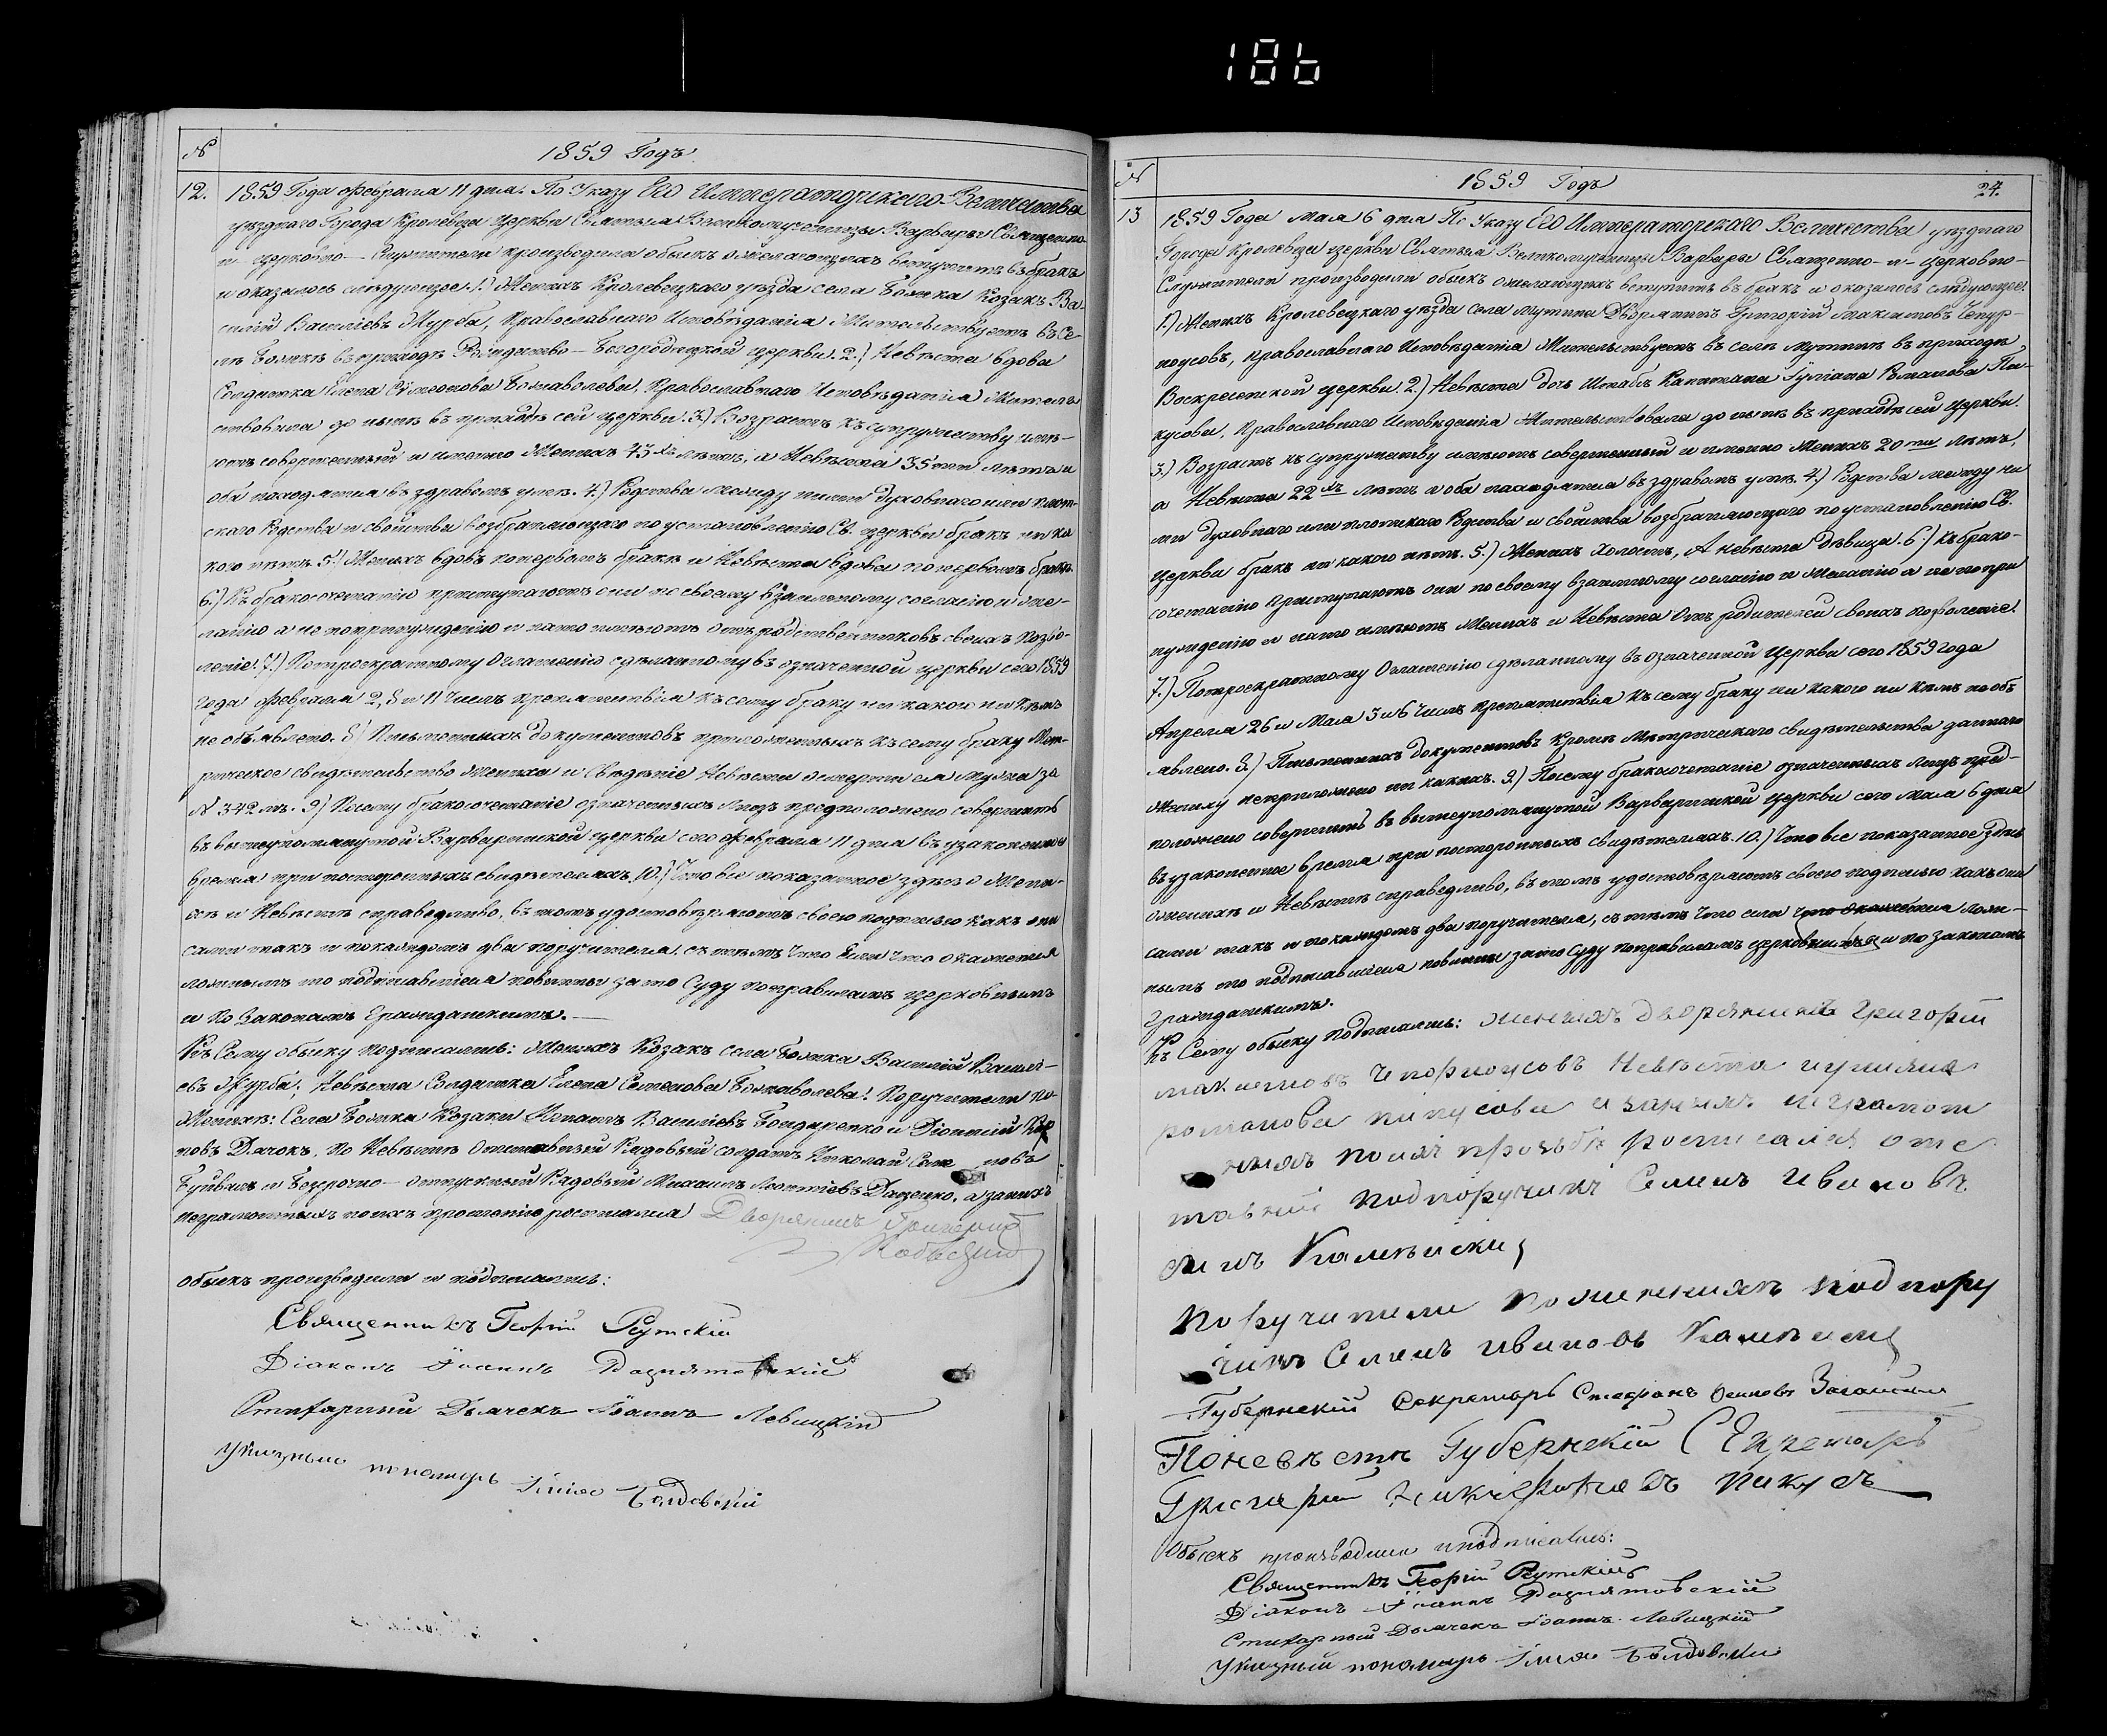 186
№
1859 Годъ.
12. 1859 Года Февраля 11 дня. По Указу Его Императорскаго Величества
уѣзднаго Города Кролевца церкви Святыя Великомученицы Варвары Священно-
и церковно-Служители производили обыскъ о желающихъ вступить въ бракъ
и оказалось слѣдующее: 1.) Женихъ Кролевецкаго уѣзда села Божка Козакъ Ва-
силій Васильевъ Журба, Православнаго Исповѣданія Жительствуетъ въ Се-
лѣ Божкѣ въ приходѣ Рождество-Богородицкой церкви. 2.) Невѣста вдова
Солдатка Елена Сѵмеонова Божаволева, Православнаго Исповѣданія Житель-
ствовала до нынѣ въ приходѣ сей церкви. 3.) Возрастъ къ супружеству имѣ-
ютъ совершенный и именно Женихъ 43хъ лѣтъ, а Невѣста 35ти лѣтъ и
оба находятся въ здравомъ умѣ. 4.) Родства между ними духовнаго или плот-
скаго Родства и свойства возбраняющаго по установленію Св. церкви бракъ ника
кого нѣтъ. 5.) Женихъ вдовъ по первомъ бракѣ и Невѣста вдова по первомъ бракѣ.
6.) Къ бракосочетанію приступаютъ они по своему взаимному согласію и же-
ланію а не по принужденію и на то имѣютъ отъ родственниковъ своихъ позво-
леніе. 7.) По троекратному Оглашенію сдѣланному въ означенной церкви сего 1859
года Февраля 2, 8 и 11 чиселъ препятствія къ сему браку ни какои ни кѣмъ
не объявлено. 8.) Письменныхъ документовъ приложенныхъ къ сему браку Мет-
рическое свидѣтельство Жениха и Свѣдѣніе Невѣсты о смерти ея мужа за
№ 342мъ. 9.) По сему бракосочетаніе означенныхъ лицъ предположено совершить
въ вышеупомянутой Варваринской церкви сего Февраля 11 дня въ узаконенное
время при постороннихъ свидѣтеляхъ. 10.) Что все показанное здѣсь о Жени-
хѣ и Невѣстѣ справедливо, въ томъ удостовѣряютъ своею подписью какъ они
сами такъ и по каждомъ два поручителя, съ тѣмъ что если что окажется
ложнымъ то подписавшіеся повинны за то Суду по правиламъ церковнымъ
и по Законамъ Гражданскимъ. —
Къ Сему обыску подписались: Женихъ Козакъ села Божка Василій Василі-
евъ Журба; Невѣста Солдатка Елена Семенова Божаволева. Поручители по
Женихѣ: Села Божка Козаки Игнатъ Василіевъ Бондаренко и Діонисій
повъ Дячокъ, По Невѣстѣ Отставный Рядовый солдатъ Николай Семе новъ
и Безсрочно-отпускный Рядовый Михаилъ Леонтіевъ Даценко, а за нихъ
неграмотныхъ по ихъ прошенію росписался Дворянинъ Григорій
обыскъ производили и подписались:
Священникъ Георгій Рутскій
Діаконъ Іоаннъ
Стихарный Дьячекъ Іоаннъ Левицкій
Указный пономарь Болдовскій
№
1859 Годъ
24.
13 1859 Года Мая 6 дня По Указу Его Императорскаго Величества уѣзднаго
Города Кролевца церкви Святыя Великомученицы Варвары Священно-и-церковно-
Служители производили обыскъ о желающихъ вступить въ бракъ и оказалось слѣдующее:
1.) Женихъ Кролевецкаго уѣзда села Мутина Дворянинъ Григорій Максимовъ Чепур-
ноусовъ, православнаго Исповѣданія Жительствуетъ въ селѣ Мутинѣ въ приходѣ
Воскресенской церкви. 2.) Невѣста дочь Штабъ Капитана Іуліана Романова Пи-
кусова, Православнаго Исповѣданія Жительствовала до нынѣ въ приходѣ сей церкви.
3.) Возрастъ къ супружеству имѣютъ совершенный и именно Женихъ 20ти лѣтъ,
а Невѣста 22хъ лѣтъ и оба находятся въ здравомъ умѣ. 4.) Родства между ни
ми духовнаго или плотскаго Родства и свойства возбраняющаго по установленію Св.
церкви бракъ ни какого нѣтъ. 5.) Женихъ Холостъ, а Невѣста дѣвица. 6.) Къ брако-
сочетанію приступаютъ они по своему взаимному согласію и желанію а не по при
нужденію и на то имѣютъ Женихъ и Невѣста Отъ родителей своихъ позволеніе.
7.) По троекратному Оглашенію сдѣланному въ означенной церкви сего 1859 года
Апреля 26 и Мая 3 и 6 чиселъ препятствія къ сему браку ни какого ни кѣмъ не объ
явлено. 8.) Письменныхъ документовъ кромѣ Метрическаго свидѣтельства даннаго
Жениху не приложено ни какихъ. 9.) По сему бракосочетаніе означенныхъ лицъ пред-
положено совершить въ вышеупомянутой Варваринской церкви сего Мая 6 дня
въ узаконенное время при постороннихъ свидѣтеляхъ. 10.) Что все показанное здѣсь
о женихѣ и Невѣстѣ справедливо, въ томъ удостовѣряютъ своею подписью какъ они
сами такъ и по каждомъ два поручителя, съ тѣмъ что если что окажется лож-
нымъ то подписавшіеся повинны за то Суду по правиламъ церковнымъ и по законамъ
Гражданскимъ.
Къ Сему обыску подписались: женихъ дворянинъ Григорій
максимовъ Чепорноусовъ Невѣста иулияна
романова пикусова а занихъ неграмот
ныхъ поихъ прозьбѣ росписался отс
тавній подпоручикъ Семенъ Ивановъ
синъ Камѣнски
Поручители поженихѣ подпору
чикъ Семенъ ивановъ Камѣнски
Губернскій Секретарь Стефанъ
Поневѣстѣ Губернскій Секретарь
Григорій Никифоровъ Пикусъ
Обыскъ производили и подписались:
Священникъ Георгій Рутскій
Діаконъ Іоаннъ
Стихарный Дьячекъ Іоаннъ Левицкій
Указный пономарь Болдовскій